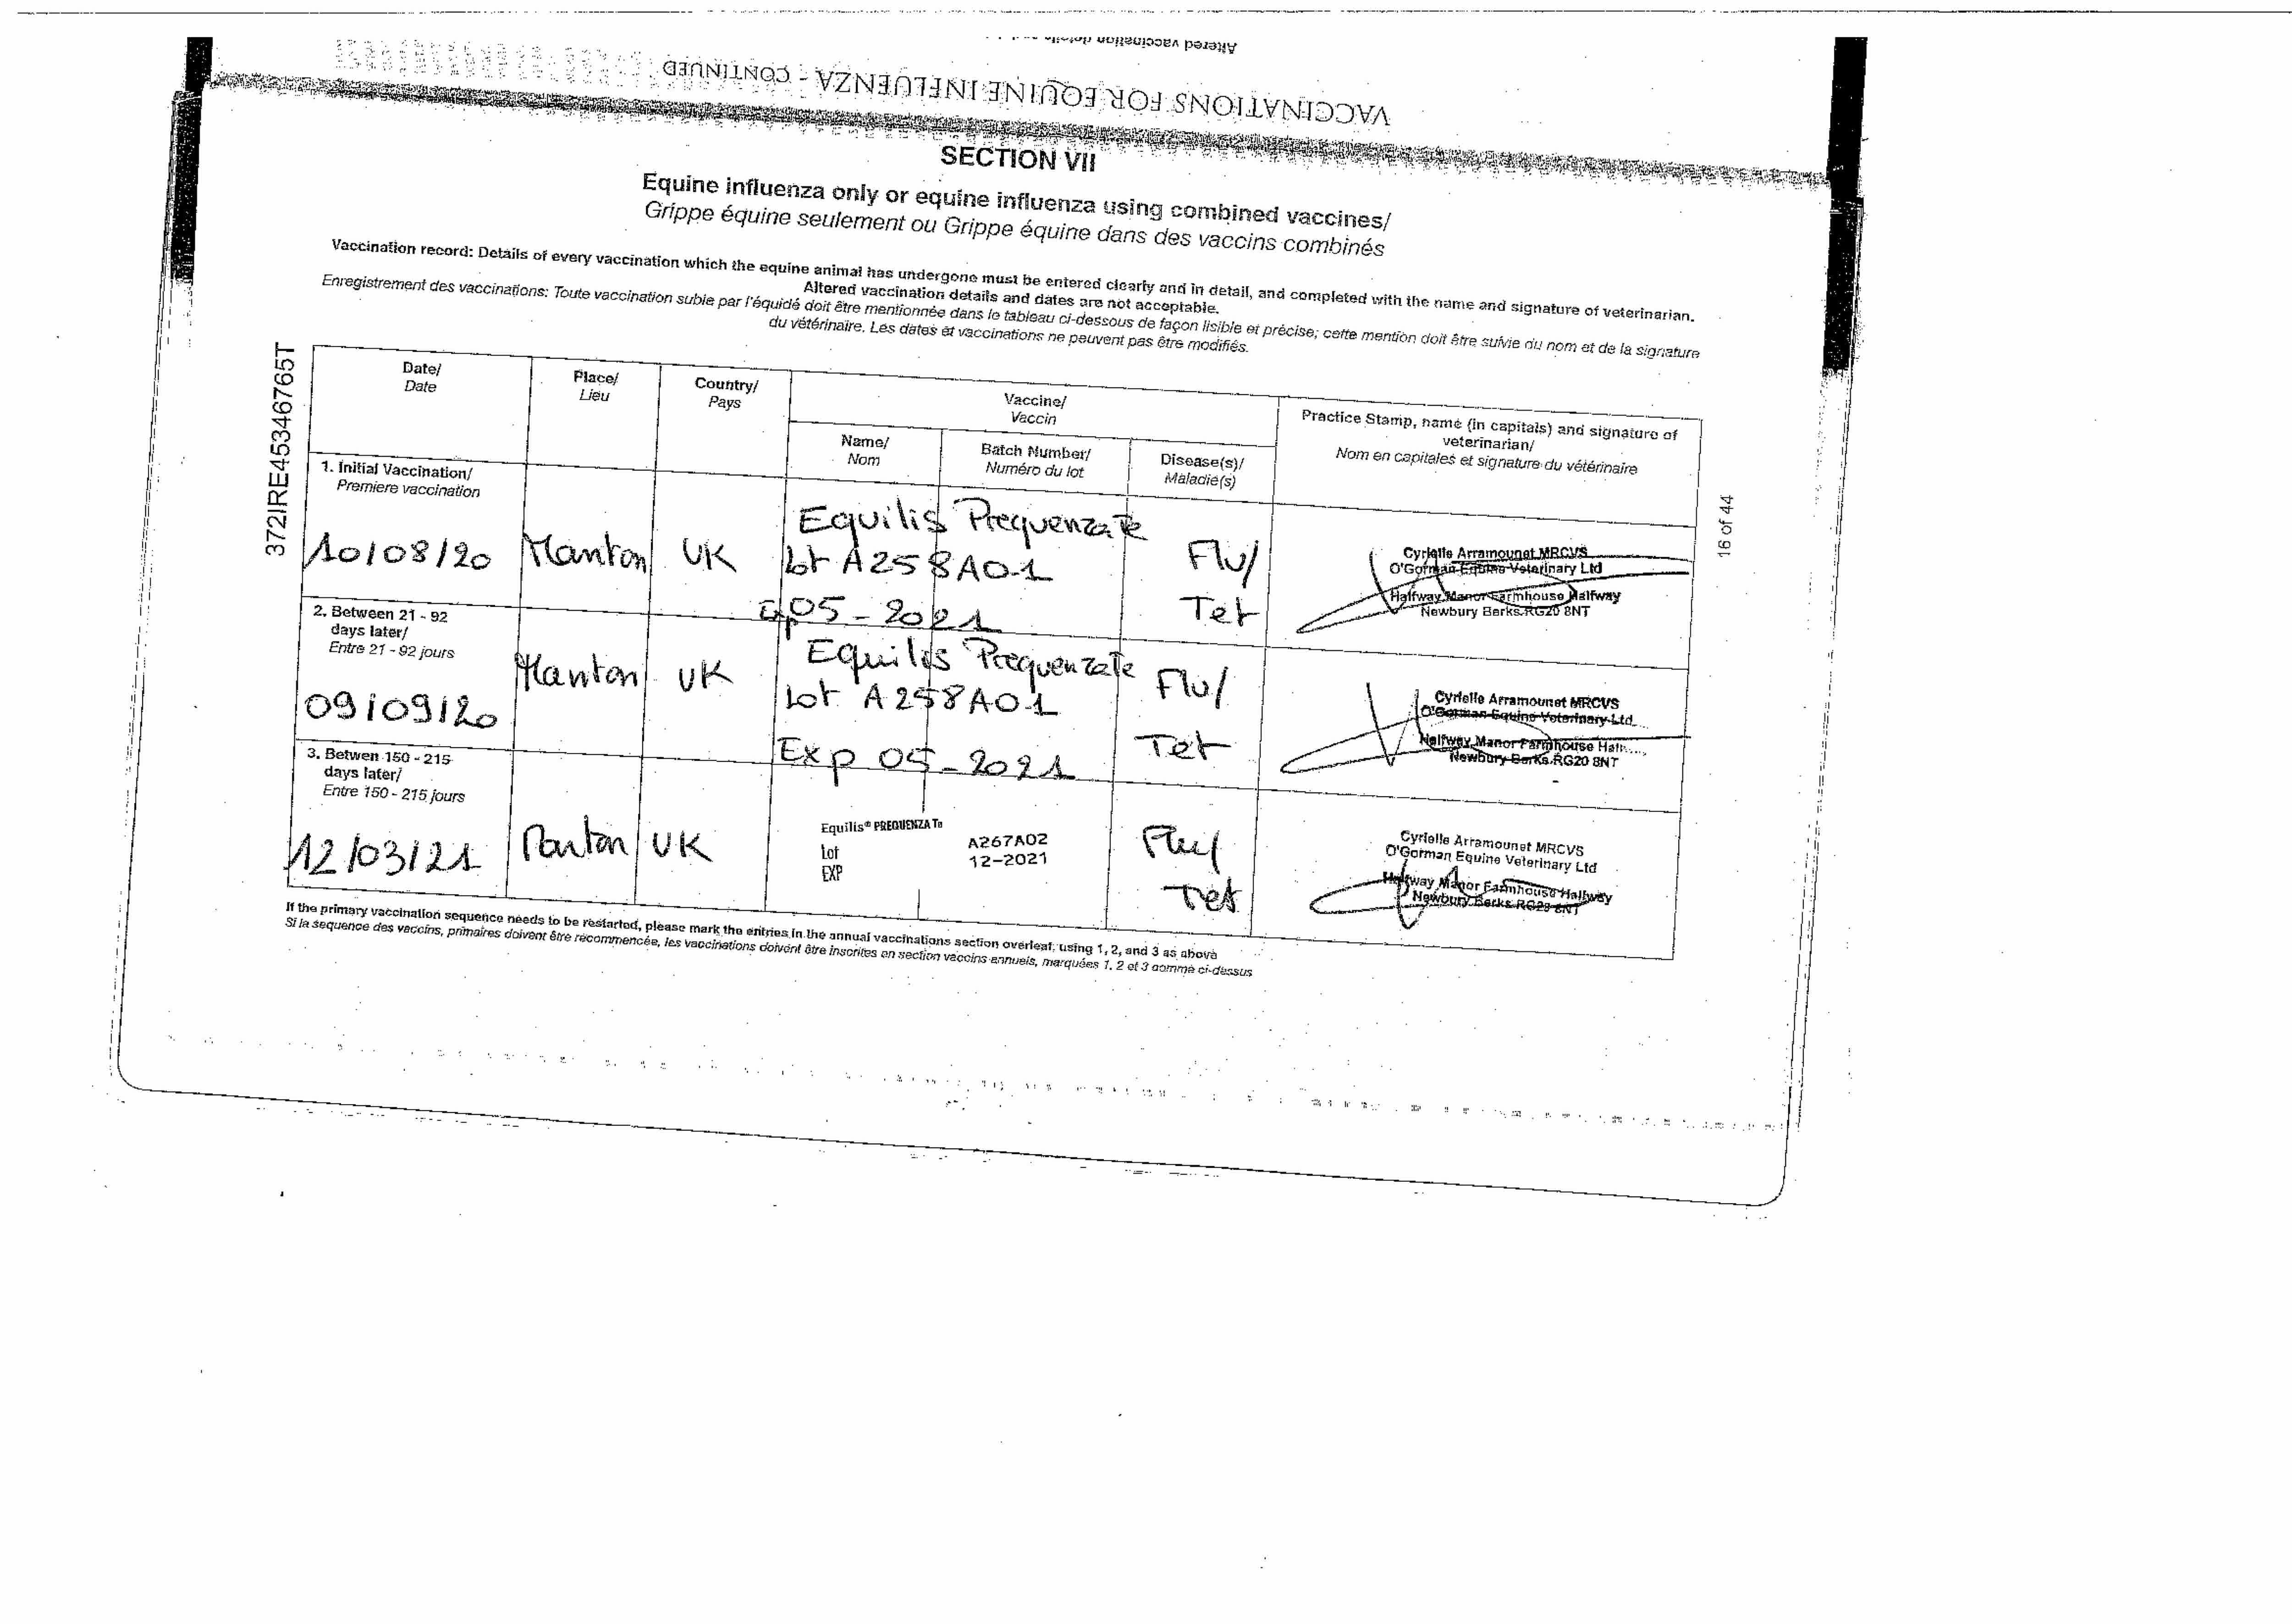 Altered vaccination details
VACCINATIONS FOR EQUINE INFLUENZA - CONTINUED
SECTION VII
Equine influenza only or equine influenza using combined vaccines/
Grippe équine seulement ou Grippe équine dans des vaccins combinés
Vaccination record: Details of every vaccination which the equine animal has undergone must be entered clearly and in detail, and completed with the name and signature of veterinarian.
Altered vaccination details and dates are not acceptable.
Enregistrement des vaccinations: Toute vaccination subie par l'équidé doit être mentionnée dans le tableau ci-dessous de façon lisible et précise; cette mention doit être suivie du nom et de la signature
du vétérinaire. Les dates et vaccinations ne peuvent pas être modifiés.
372IRE45346765T
16 of 44
Date/
Date
Place/
Lieu
Country/
Pays
Vaccine/
Vaccin
Name/
Nom
Batch Number/
Numéro du lot
Disease(s)/
Maladie(s)
Practice Stamp, name (in capitals) and signature of
veterinarian/
Nom en capitales et signature du vétérinaire
1. Initial Vaccination/
Premiere vaccination
10/08/20
Manton
UK
Equilis Prequenza Te
Lot A258A01
Exp 05-2021
Flu/
Tet
Cyrielle Arramounet MRCVS
O'Gorman Equine Veterinary Ltd
Halfway Manor Farmhouse Halfway
Newbury Berks RG20 8NT
2. Between 21 - 92
days later/
Entre 21 - 92 jours
09/09/20
Manton
UK
Equilis Prequenza Te
Lot A258A01
Exp 05-2021
Flu/
Tet
Cyrielle Arramounet MRCVS
O'Gorman Equine Veterinary Ltd
Halfway Manor Farmhouse
Newbury Berks RG20 8NT
3. Betwen 150 - 215
days later/
Entre 150 - 215 jours
12/03/21
Manton
UK
Equilis® PREQUENZA Te
Lot A267A02
EXP 12-2021
Flu/
Tet
Cyrielle Arramounet MRCVS
O'Gorman Equine Veterinary Ltd
Halfway Manor Farmhouse Halfway
Newbury Berks RG20 8NT
If the primary vaccination sequence needs to be restarted, please mark the entries in the annual vaccinations section overleaf, using 1, 2, and 3 as above
Si la sequence des vaccins, primaires doivent être recommencée, les vaccinations doivent être inscrites en section vaccins annuels, marquées 1, 2 et 3 comme ci-dessus